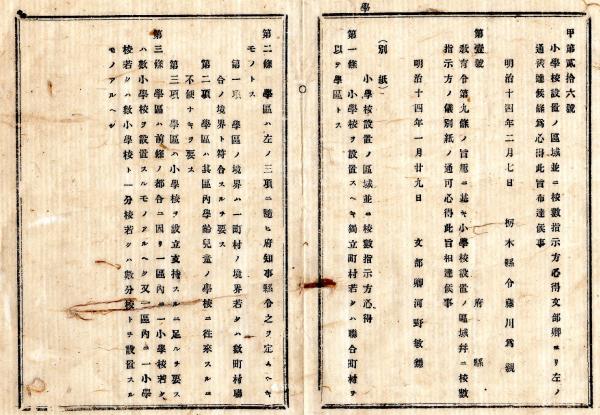 學
甲第貳拾六號
小學校設置ノ區域並ニ校數指示方心得文部卿ヨリ左ノ
通被達候條爲心得此旨布達候事
明治十四年二月七日　栃木縣令藤川爲親
第壹號　府縣
敎育令第九條ノ旨趣ニ基キ小學校設置ノ區域幷ニ校數
指示方ノ儀別紙ノ通可心得此旨相達候事
明治十四年一月廿九日　文部卿河野敏鎌
(別紙)
小學校設置ノ區域並ニ校數指示方心得
第一條　小學校ヲ設置スヘキ獨立町村若クハ聯合町村ヲ
以テ學區トス
第二條　學區ハ左ノ三項ニ隨ヒ府知事縣令之ヲ定ムヘキ
モノトス
第一項　學區ノ境界ハ一町村ノ境界若クハ數町村聯
合ノ境界ト符合スルヲ要ス
第二項　學區ハ其區內學齡兒童ノ學校ニ往來スルニ
不便ナキヲ要ス
第三項　學區ハ小學校ヲ設立支持スルニ足ルヲ要ス
第三條　學區ハ前條ノ都合ニ因リ一區內ニ一小學校若ク
ハ數小學校ヲ設置スルモノアルヘク又一區內ニ一小學
校若クハ數小學校ト一分校若クハ數分校トヲ設置スル
モノアルヘシ